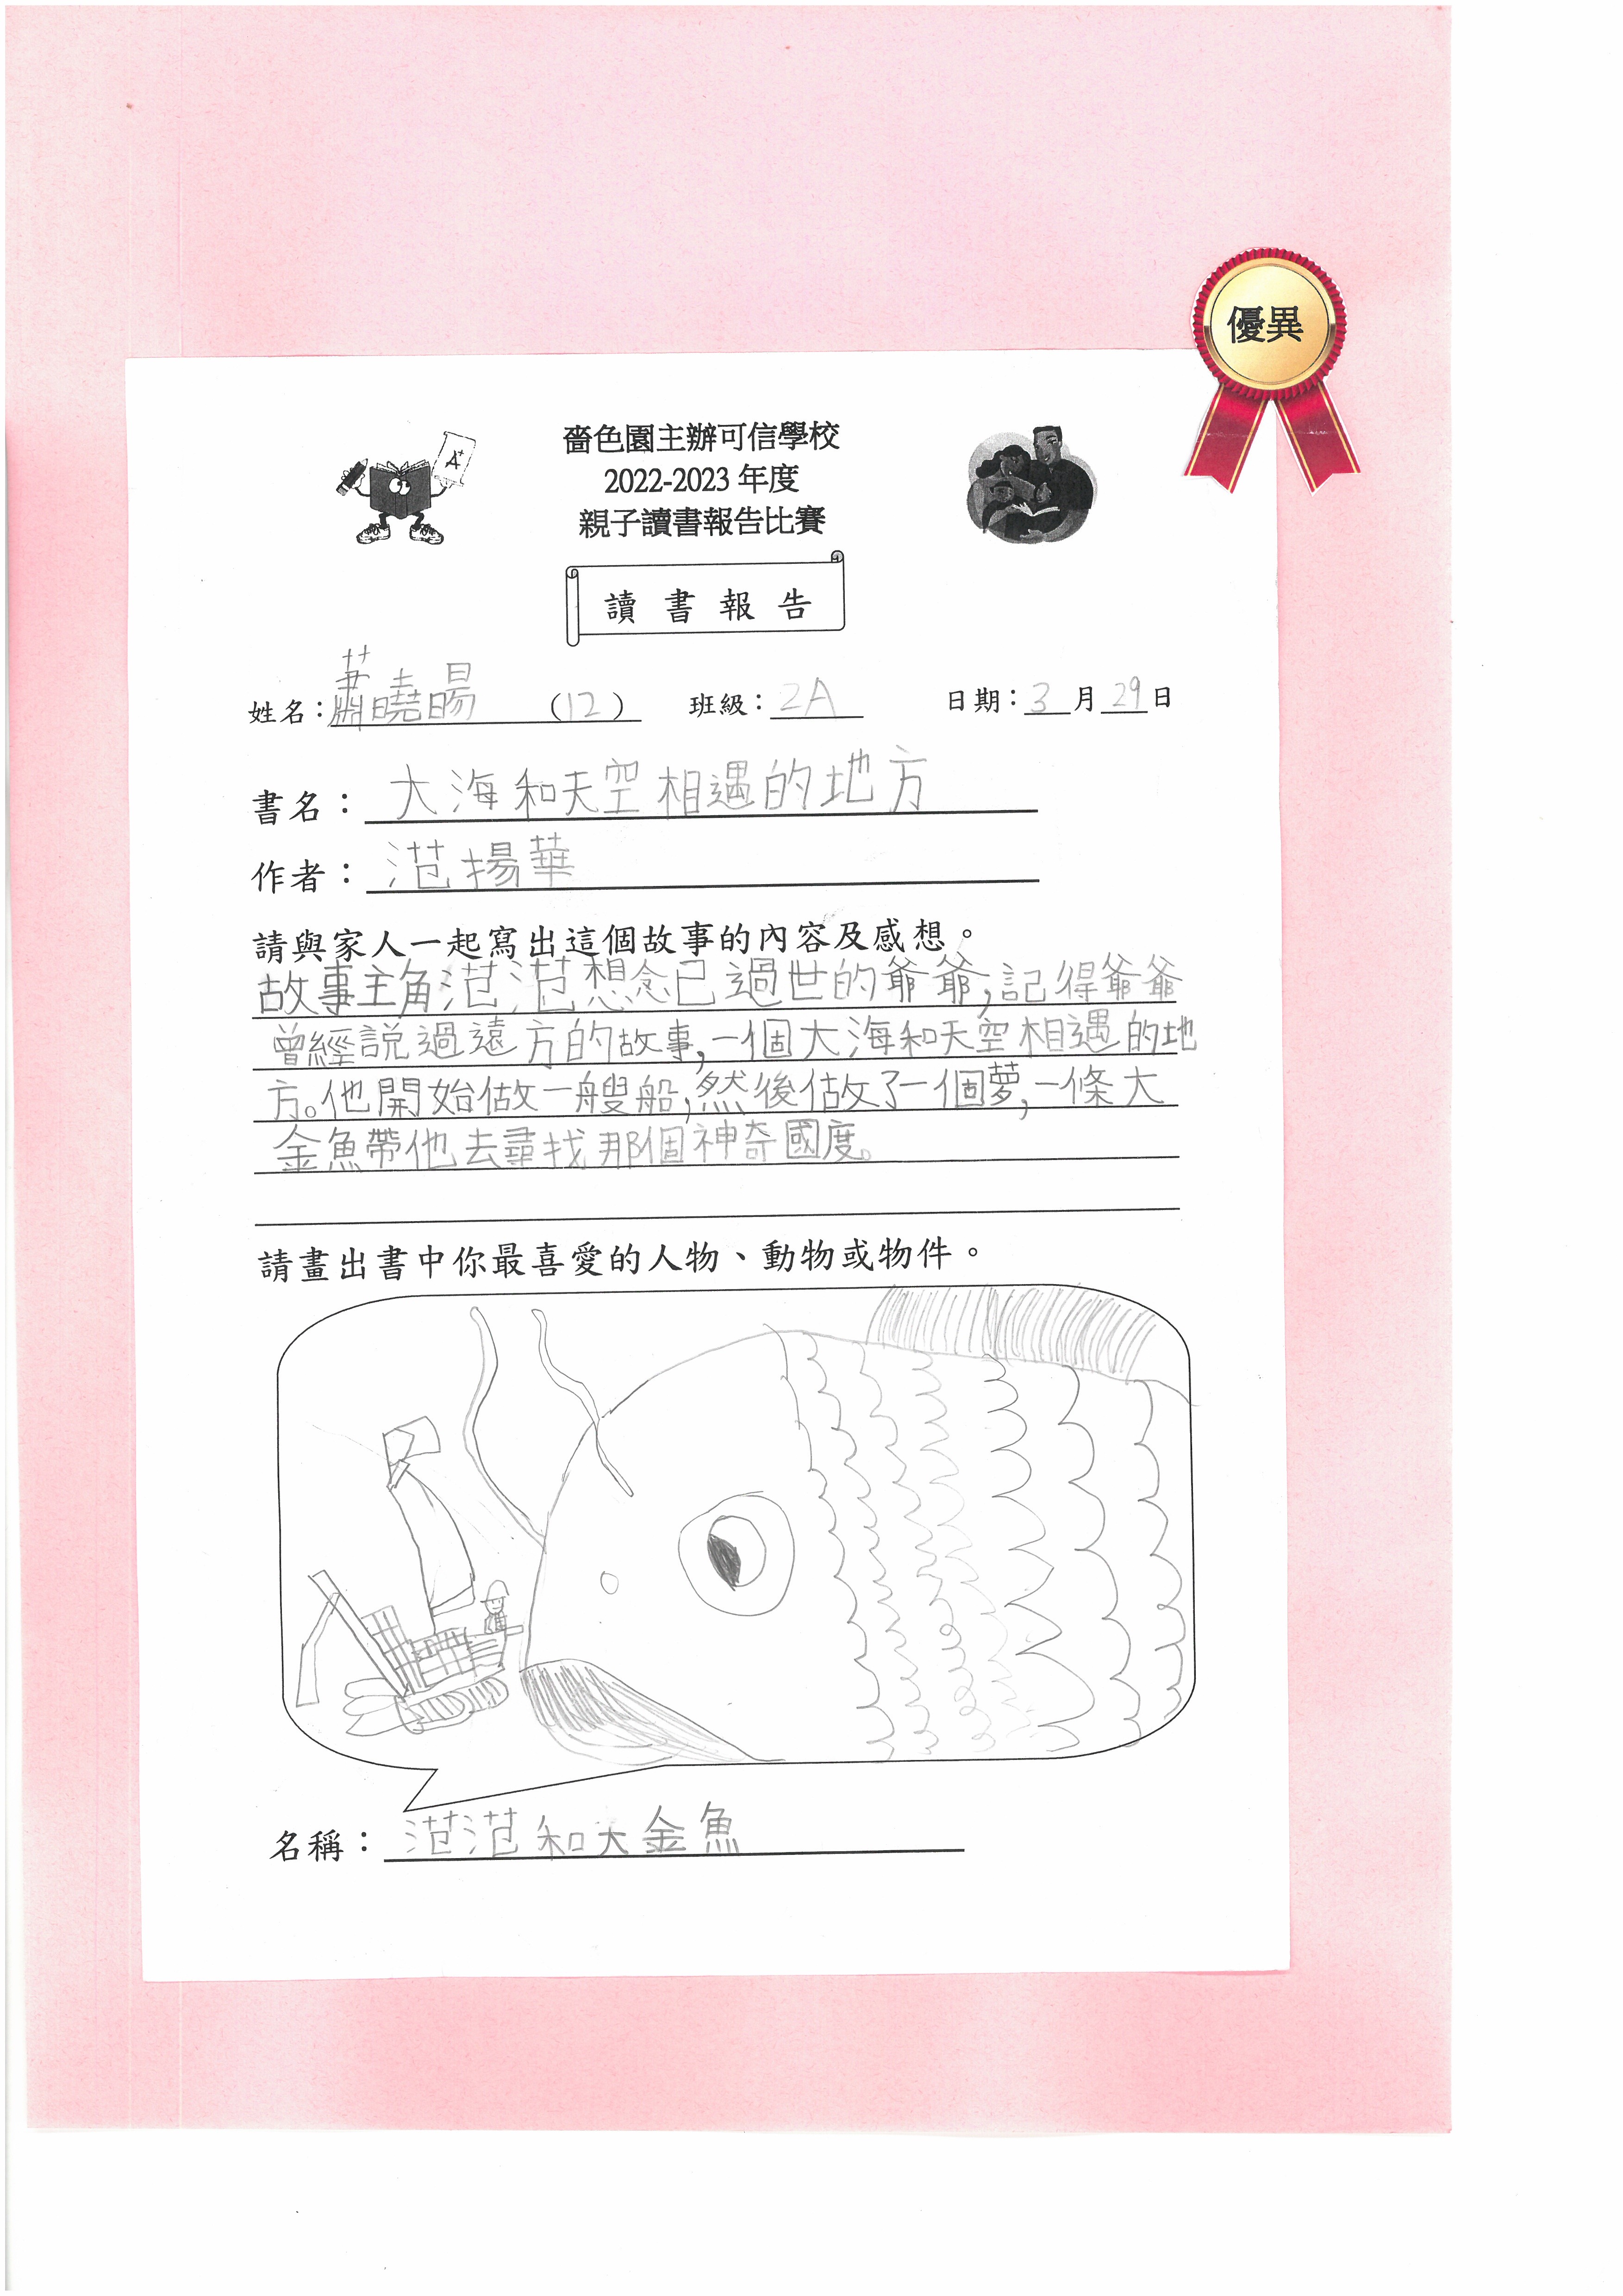 優異
A+
嗇色園主辦可信學校
2022-2023 年度
親子讀書報告比賽
讀書報告
姓名：蕭曉暘 (12) 班級：2A 日期：3月29日
書名：大海和天空相遇的地方
作者：范揚華
請與家人一起寫出這個故事的內容及感想。
故事主角范范想念已過世的爺爺,記得爺爺
曾經説過遠方的故事,一個大海和天空相遇的地
方。他開始做一艘船,然後做了一個夢,一條大
金魚帶他去尋找那個神奇國度。
請畫出書中你最喜愛的人物、動物或物件。
名稱：范范和大金魚